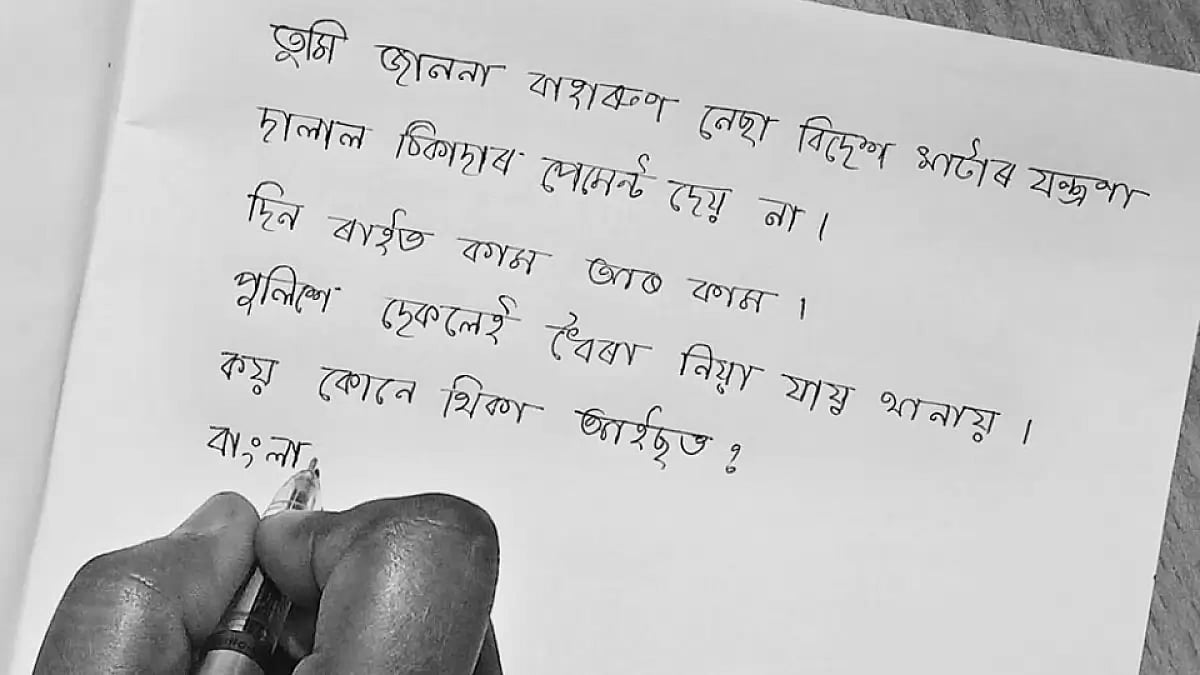 তুমি জাননা বাহাৰুণ নেছা বিদেশ মাটৌৰ যন্ত্ৰণা
দালাল ঠিকাদাৰ পেমেন্ট দেয় না।
দিন ৰাইত কাম আৰ কাম।
পুলিশে দেকলেই ধৈৰা নিয়া যায় থানায়।
কয় কোনে থিকা আইছত?
বাংলা